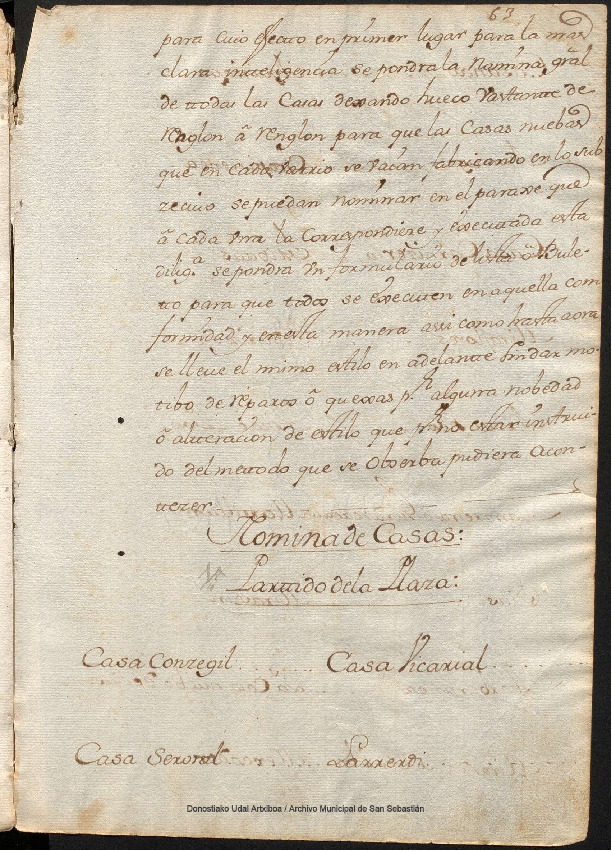 63
para cuio efecto en primer lugar para la mas
clara inteligencia se pondra la Namina gral
de ttodas las Casas dexando hueco vastante de
renglon â renglon para que las Casas nuebas
que en cada varrio se vaian fabricando en lo sub
zecivo se puedan nominar en el paraxe que
â cada una la Correspondiere y executada esta
dilig.a se pondra un formulario de lista ô Bule-
to para que todos se executen en aquella con
formidad, y en esta manera assi como hasta aora
se lleve el mimo estilo en adelante sin dar mo-
tibo de reparos ô quexas p.r alguna nobedad
ô alteracion de estilo que p.r no estar instrui-
do del metodo que se Obserba pudiera acon-
tezer
Nomina de Casas:
Partido de la Plaza:
Casa Conzegil Casa Vicarial
Casa Larrerdi
Donostiako Udal Artxiboa / Archivo Municipal de San Sebastián